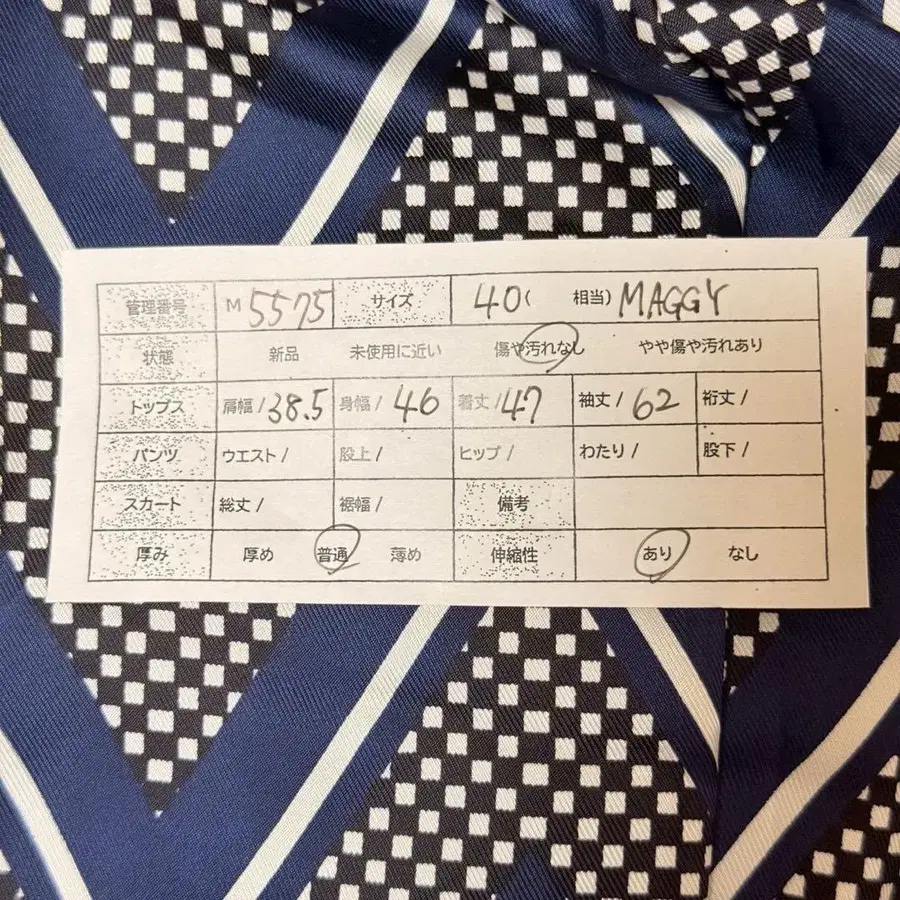 管理番号 M 5575 サイズ 40( 相当) MAGGY
状態 新品 未使用に近い 傷や汚れなし やや傷や汚れあり
トップス 肩幅/38.5 身幅/46 着丈/47 袖丈/62 裄丈/
パンツ ウエスト/ 股上/ ヒップ/ わたり/ 股下/
スカート 総丈/ 裾幅/ 備考
厚み 厚め 普通 薄め 伸縮性 あり なし